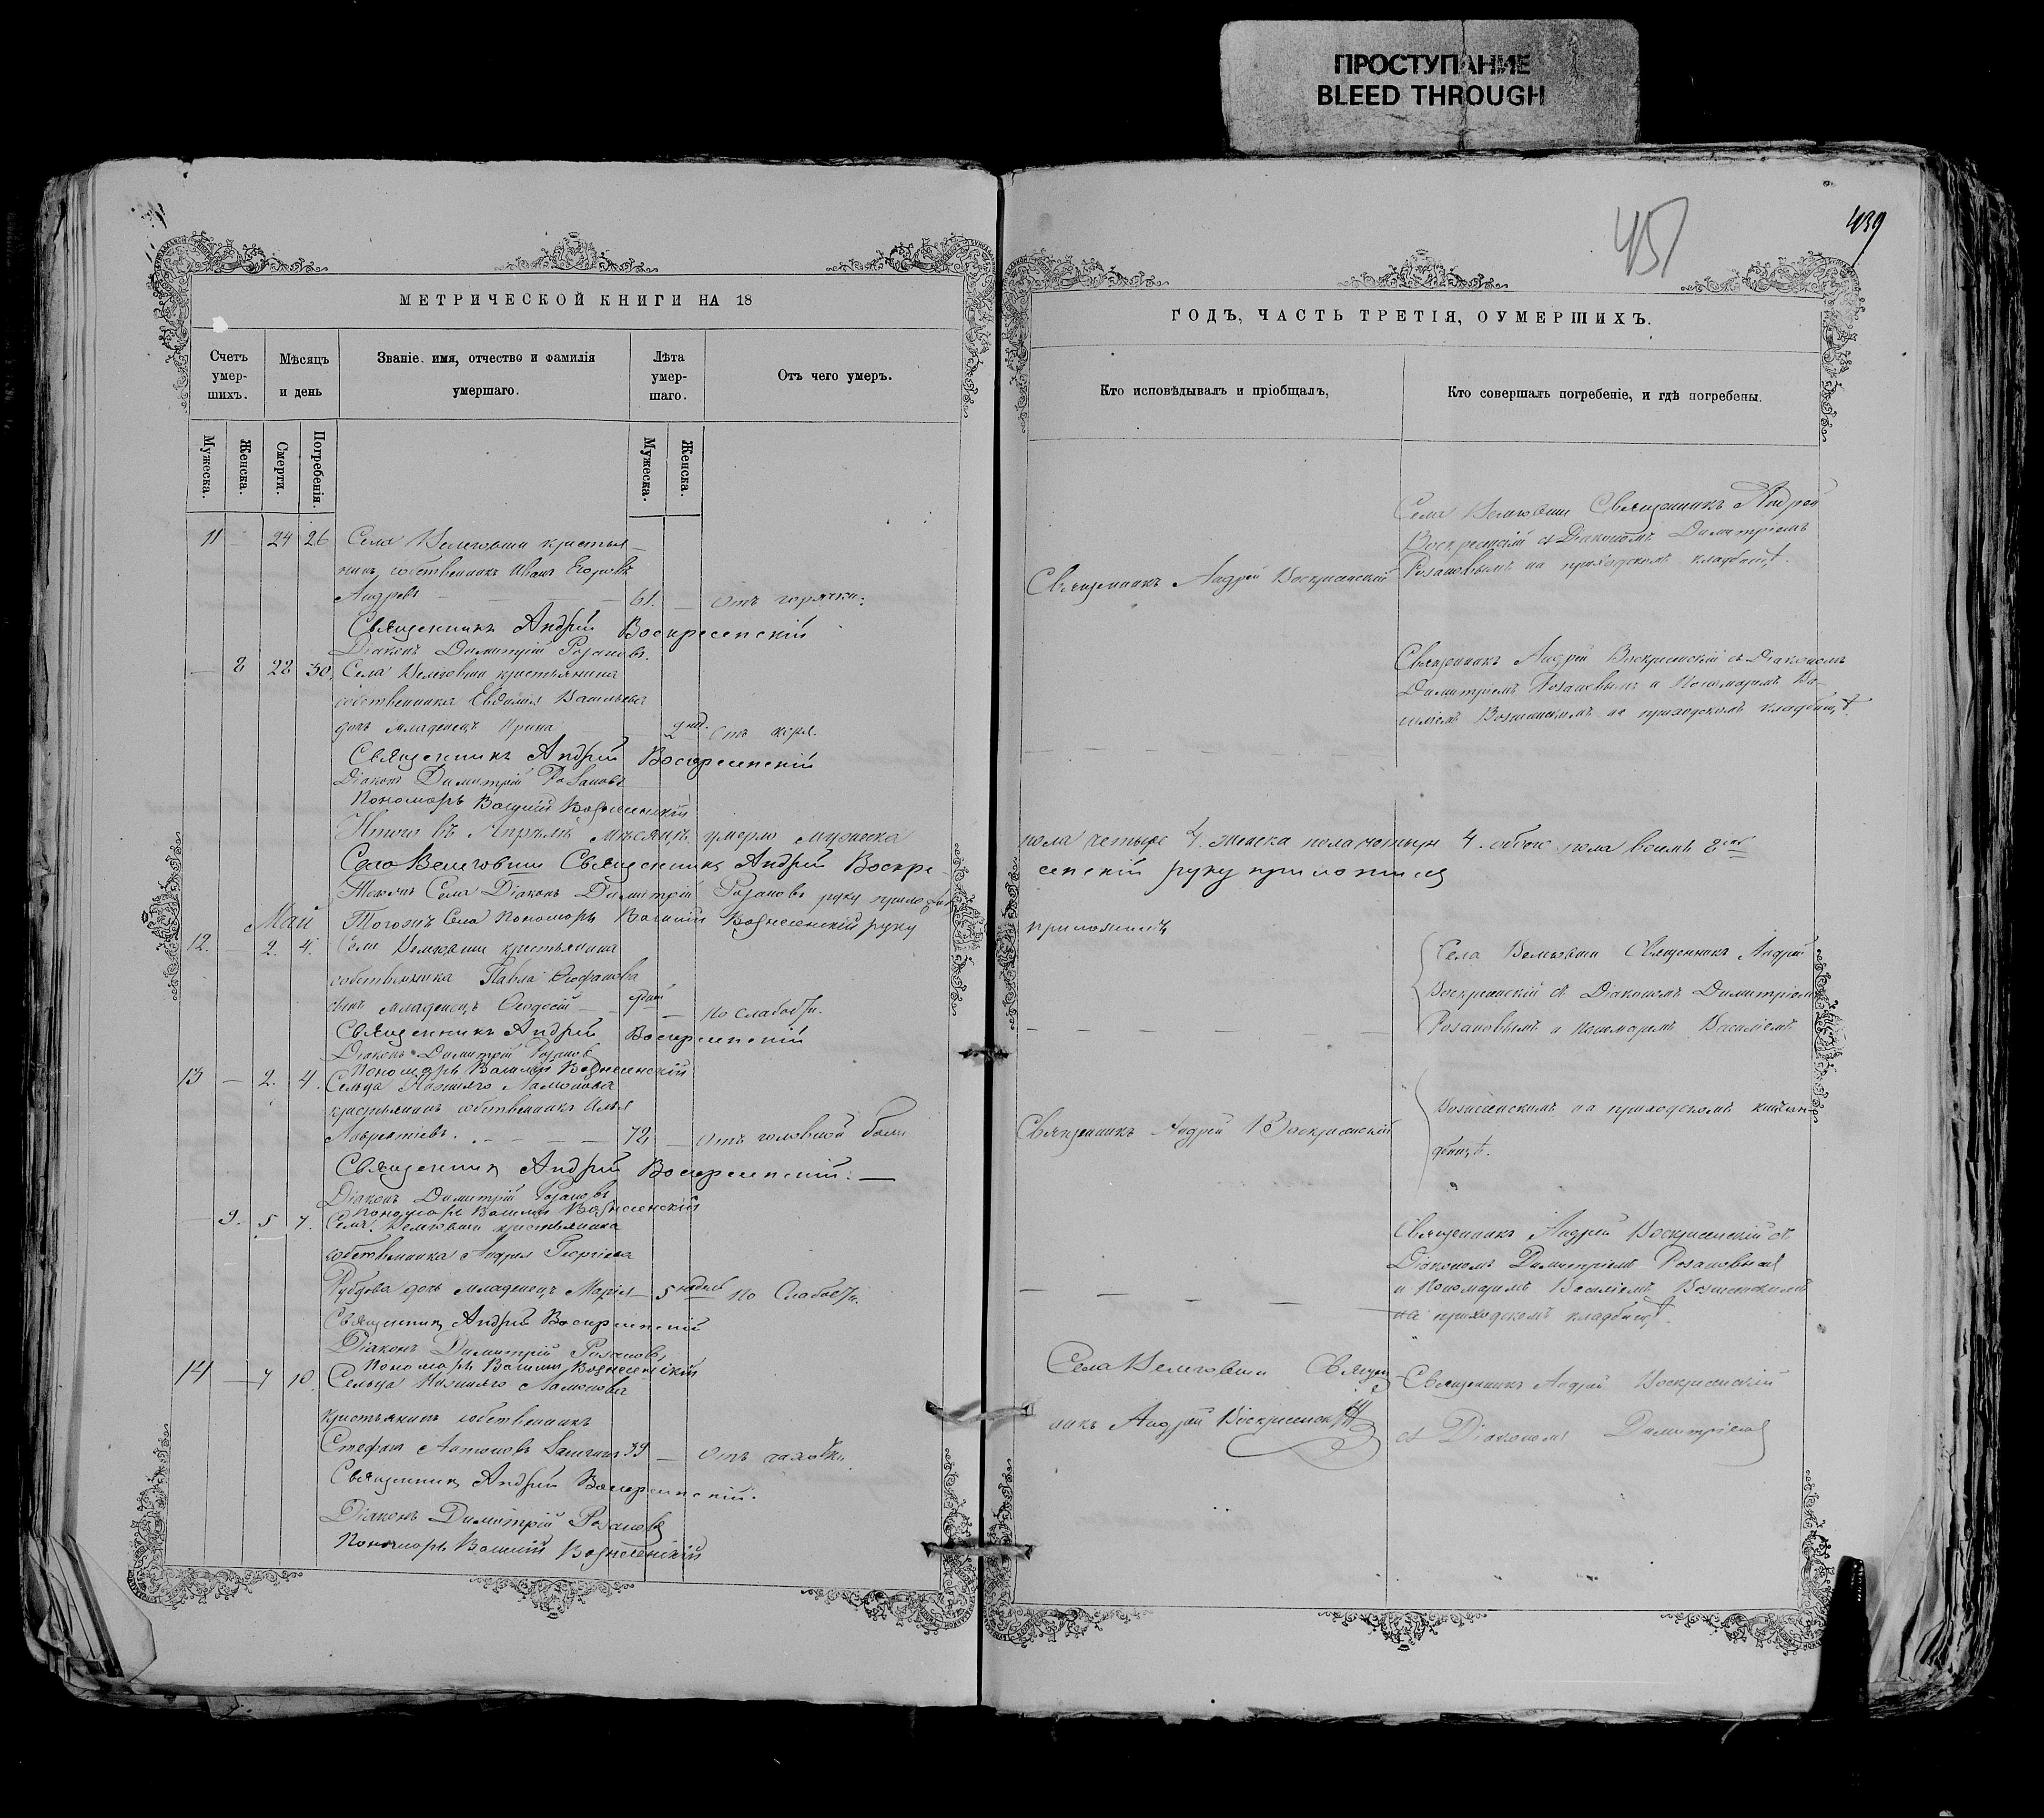 ПРОСТУПАНИЕ
BLEED THROUGH
451
439
МЕТРИЧЕСКОЙ КНИГИ НА 18
Счетъ умер-шихъ.
Мѣсяцъ и день
Званіе, имя, отчество и фамилія умершаго.
Лѣта умер-шаго.
Отъ чего умеръ.
Мужеска.
Женска.
Смерти.
Погребенія.
Мужеска.
Женска.
11 24 26 Села крестья-
нинъ собственникъ Иванъ Егоровъ
Андревъ 61. Отъ горячки.
Священникъ Андрей Воскресенскій
Діаконъ Димитрій Розановъ.
8 22 30. Села крестьянина
собственника Евдокима Васильева
дочь младенецъ Ирина 2 нед. Отъ кори.
Священникъ Андрей Воскресенскій
Діаконъ Димитрій Розановъ
Пономарь Василій Вознесенскій
Итого въ Апрѣлѣ мѣсяцѣ умерло мужеска
Села Священникъ Андрей Воскре-
Тогожъ Села Діаконъ Димитрій Розановъ руку приложилъ
Май
Тогожъ Села Пономарь Василій Вознесенскій руку
12. 2. 4. Села крестьянина
собственника Павла
сынъ младенецъ Ѳеодосій По слабости.
Священникъ Андрей Воскресенскій
Діаконъ Димитрій Розановъ
Пономарь Василій Вознесенскій
13 2. 4. Сельца Нижняго
крестьянинъ собственникъ Илья
72 Отъ головной боли
Священникъ Андрей Воскресенскій.
Діаконъ Димитрій Розановъ
Пономарь Василій Вознесенскій
9. 5 7. Села крестьянина
собственника Андрея Георгіева
Рубцова дочь младенецъ Марія 5 недѣль По Слабости.
Священникъ Андрей Воскресенскій
Діаконъ Димитрій Розановъ
Пономарь Василій Вознесенскій
14 7 10. Сельца Нижняго
крестьянинъ собственникъ
Стефанъ Антоновъ 39 Отъ чахотки.
Священникъ Андрей Воскресенскій.
Діаконъ Димитрій Розановъ
Пономарь Василій Вознесенскій
ГОДЪ, ЧАСТЬ ТРЕТІЯ, ОУМЕРШИХЪ.
Кто исповѣдывалъ и пріобщалъ,
Кто совершалъ погребеніе, и гдѣ погребены.
Села Священникъ Андрей
Воскресенскій съ Діакономъ Димитріемъ
Священникъ Андрей Воскресенскій
Розановымъ на приходскомъ кладбищѣ.
Священникъ Андрей Воскресенскій съ Діакономъ
Димитріемъ Розановымъ и Пономаремъ Ва-
силіемъ Вознесенскимъ на приходскомъ кладбищѣ.
пола четыре 4. женска пола четыре 4. обоего пола восемь 8
сенскій руку приложилъ
приложилъ
Села Священникъ Андрей
Воскресенскій съ Діакономъ Димитріемъ
Розановымъ и Пономаремъ Василіемъ
Вознесенскимъ на приходскомъ
Священникъ Андрей Воскресенскій
Священникъ Андрей Воскресенскій съ
Діакономъ Димитріемъ Розановымъ
и Пономаремъ Василіемъ Вознесенскимъ
на приходскомъ кладбищѣ.
Села Священ-
никъ Андрей Воскресенскій
Священникъ Андрей Воскресенскій
съ Діакономъ Димитріемъ